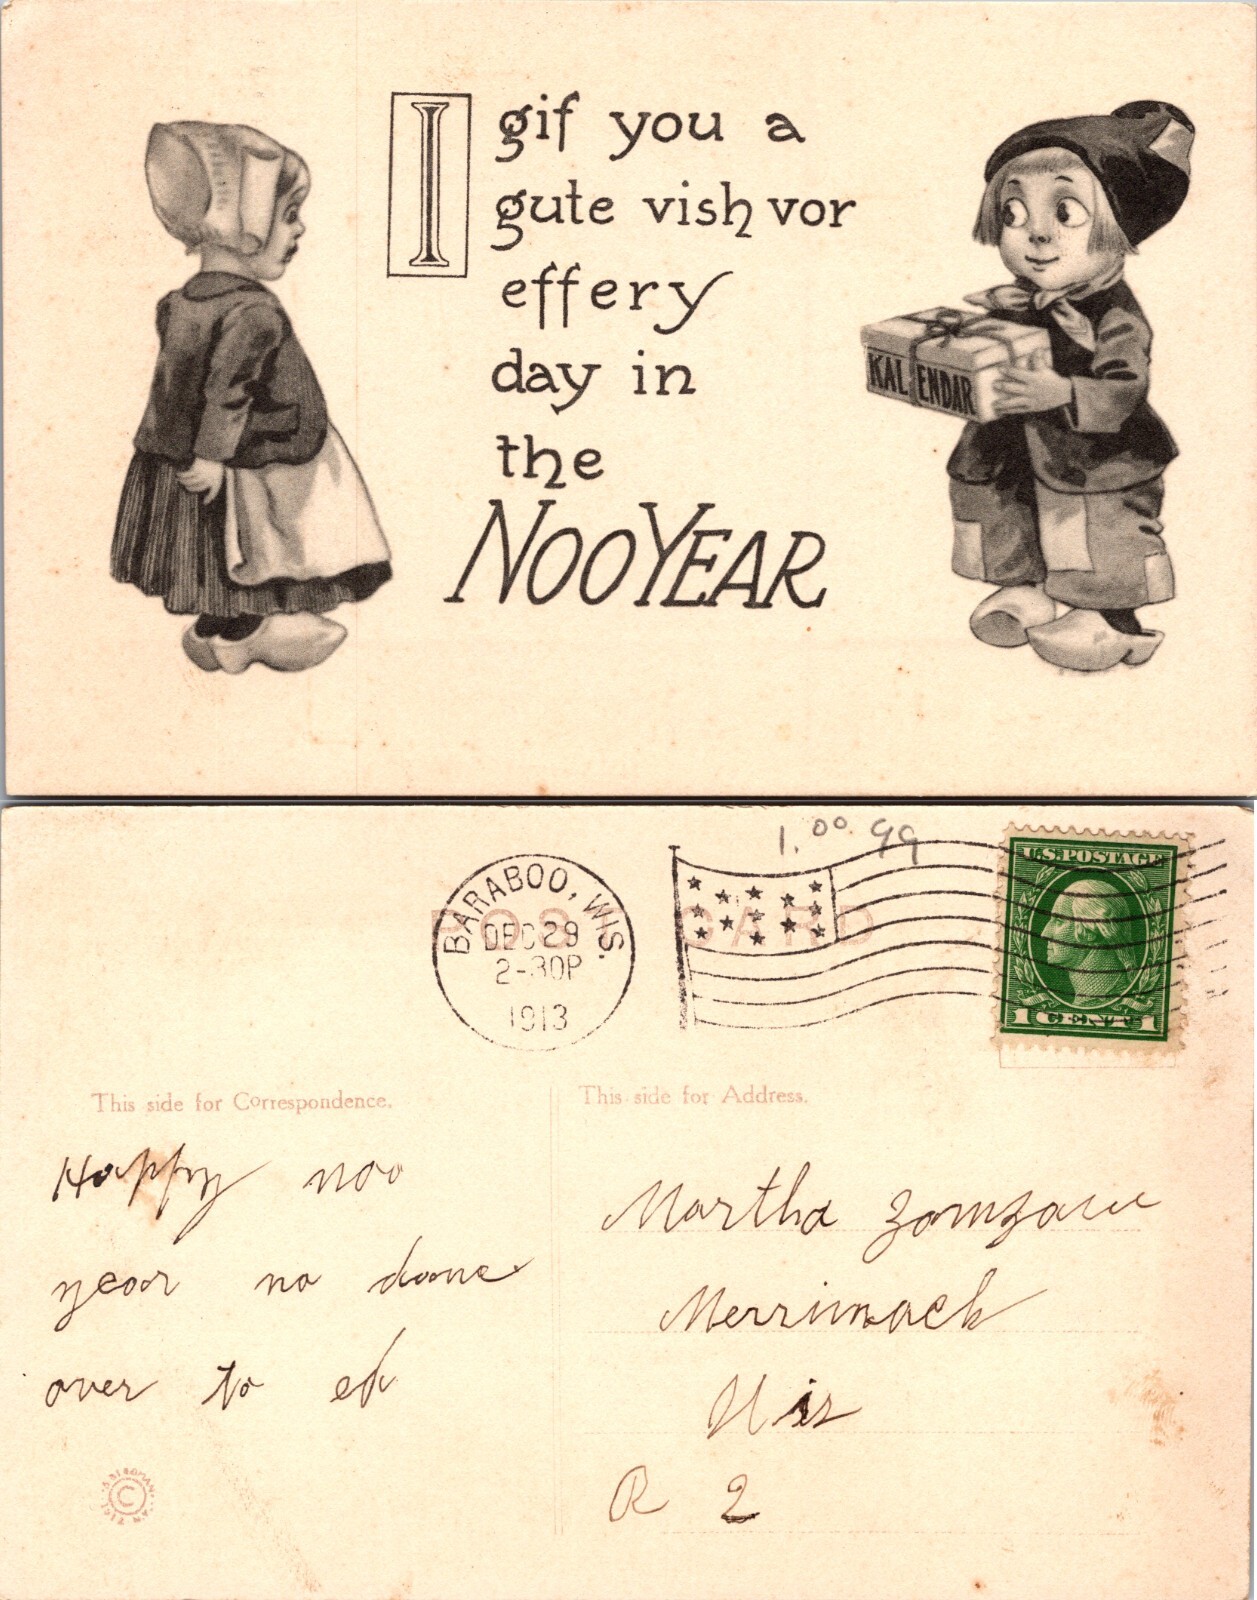 I gif you a
gute vish vor
effery
day in
the
NOO YEAR
KALENDAR
1.00 99
BARABOO, WIS.
DEC 29
2-30P
1913
POST CARD
U.S. POSTAGE
1 CENT 1
This side for Correspondence.
This side for Address.
Happy noo
year no
over to
Martha
Merrimack
Wis
R 2
C